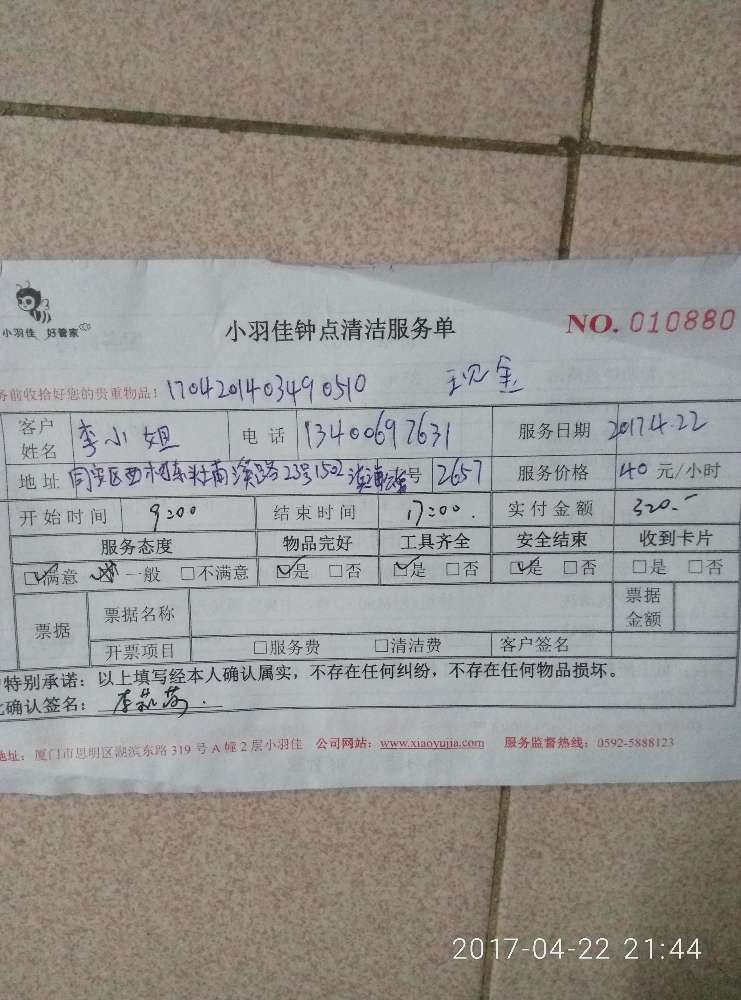 小羽佳 好管家
小羽佳钟点清洁服务单
NO. 010880
务前收拾好您的贵重物品: 1704201403490510 现金
客户姓名 李小姐 电话 13400697631 服务日期 2017.4.22
地址 同安区西柯 南 路23号1502 号 2657 服务价格 40 元/小时
开始时间 9:00 结束时间 17:00. 实付金额 320.-
服务态度 物品完好 工具齐全 安全结束 收到卡片
☑满意 一般 □不满意 ☑是 □否 ☑是 □否 ☑是 □否 □是 □否
票据 票据名称 票据金额
开票项目 □服务费 □清洁费 客户签名
特别承诺: 以上填写经本人确认属实，不存在任何纠纷，不存在任何物品损坏。
确认签名: 李
地址: 厦门市思明区湖滨东路 319 号 A 幢 2 层小羽佳 公司网站: www.xiaoyujia.com 服务监督热线: 0592-5888123
2017-04-22 21:44